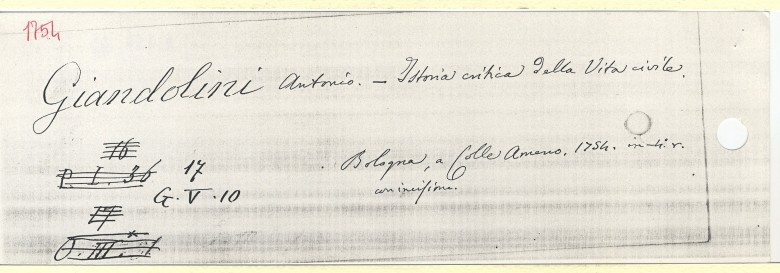 1754
Giandolini Antonio. — Istoria critica della Vita civile.
Bologna, a Colle Ameno. 1754. in-4. r.
con incisione.
16
P. I. 36 17
G. V. 10
17